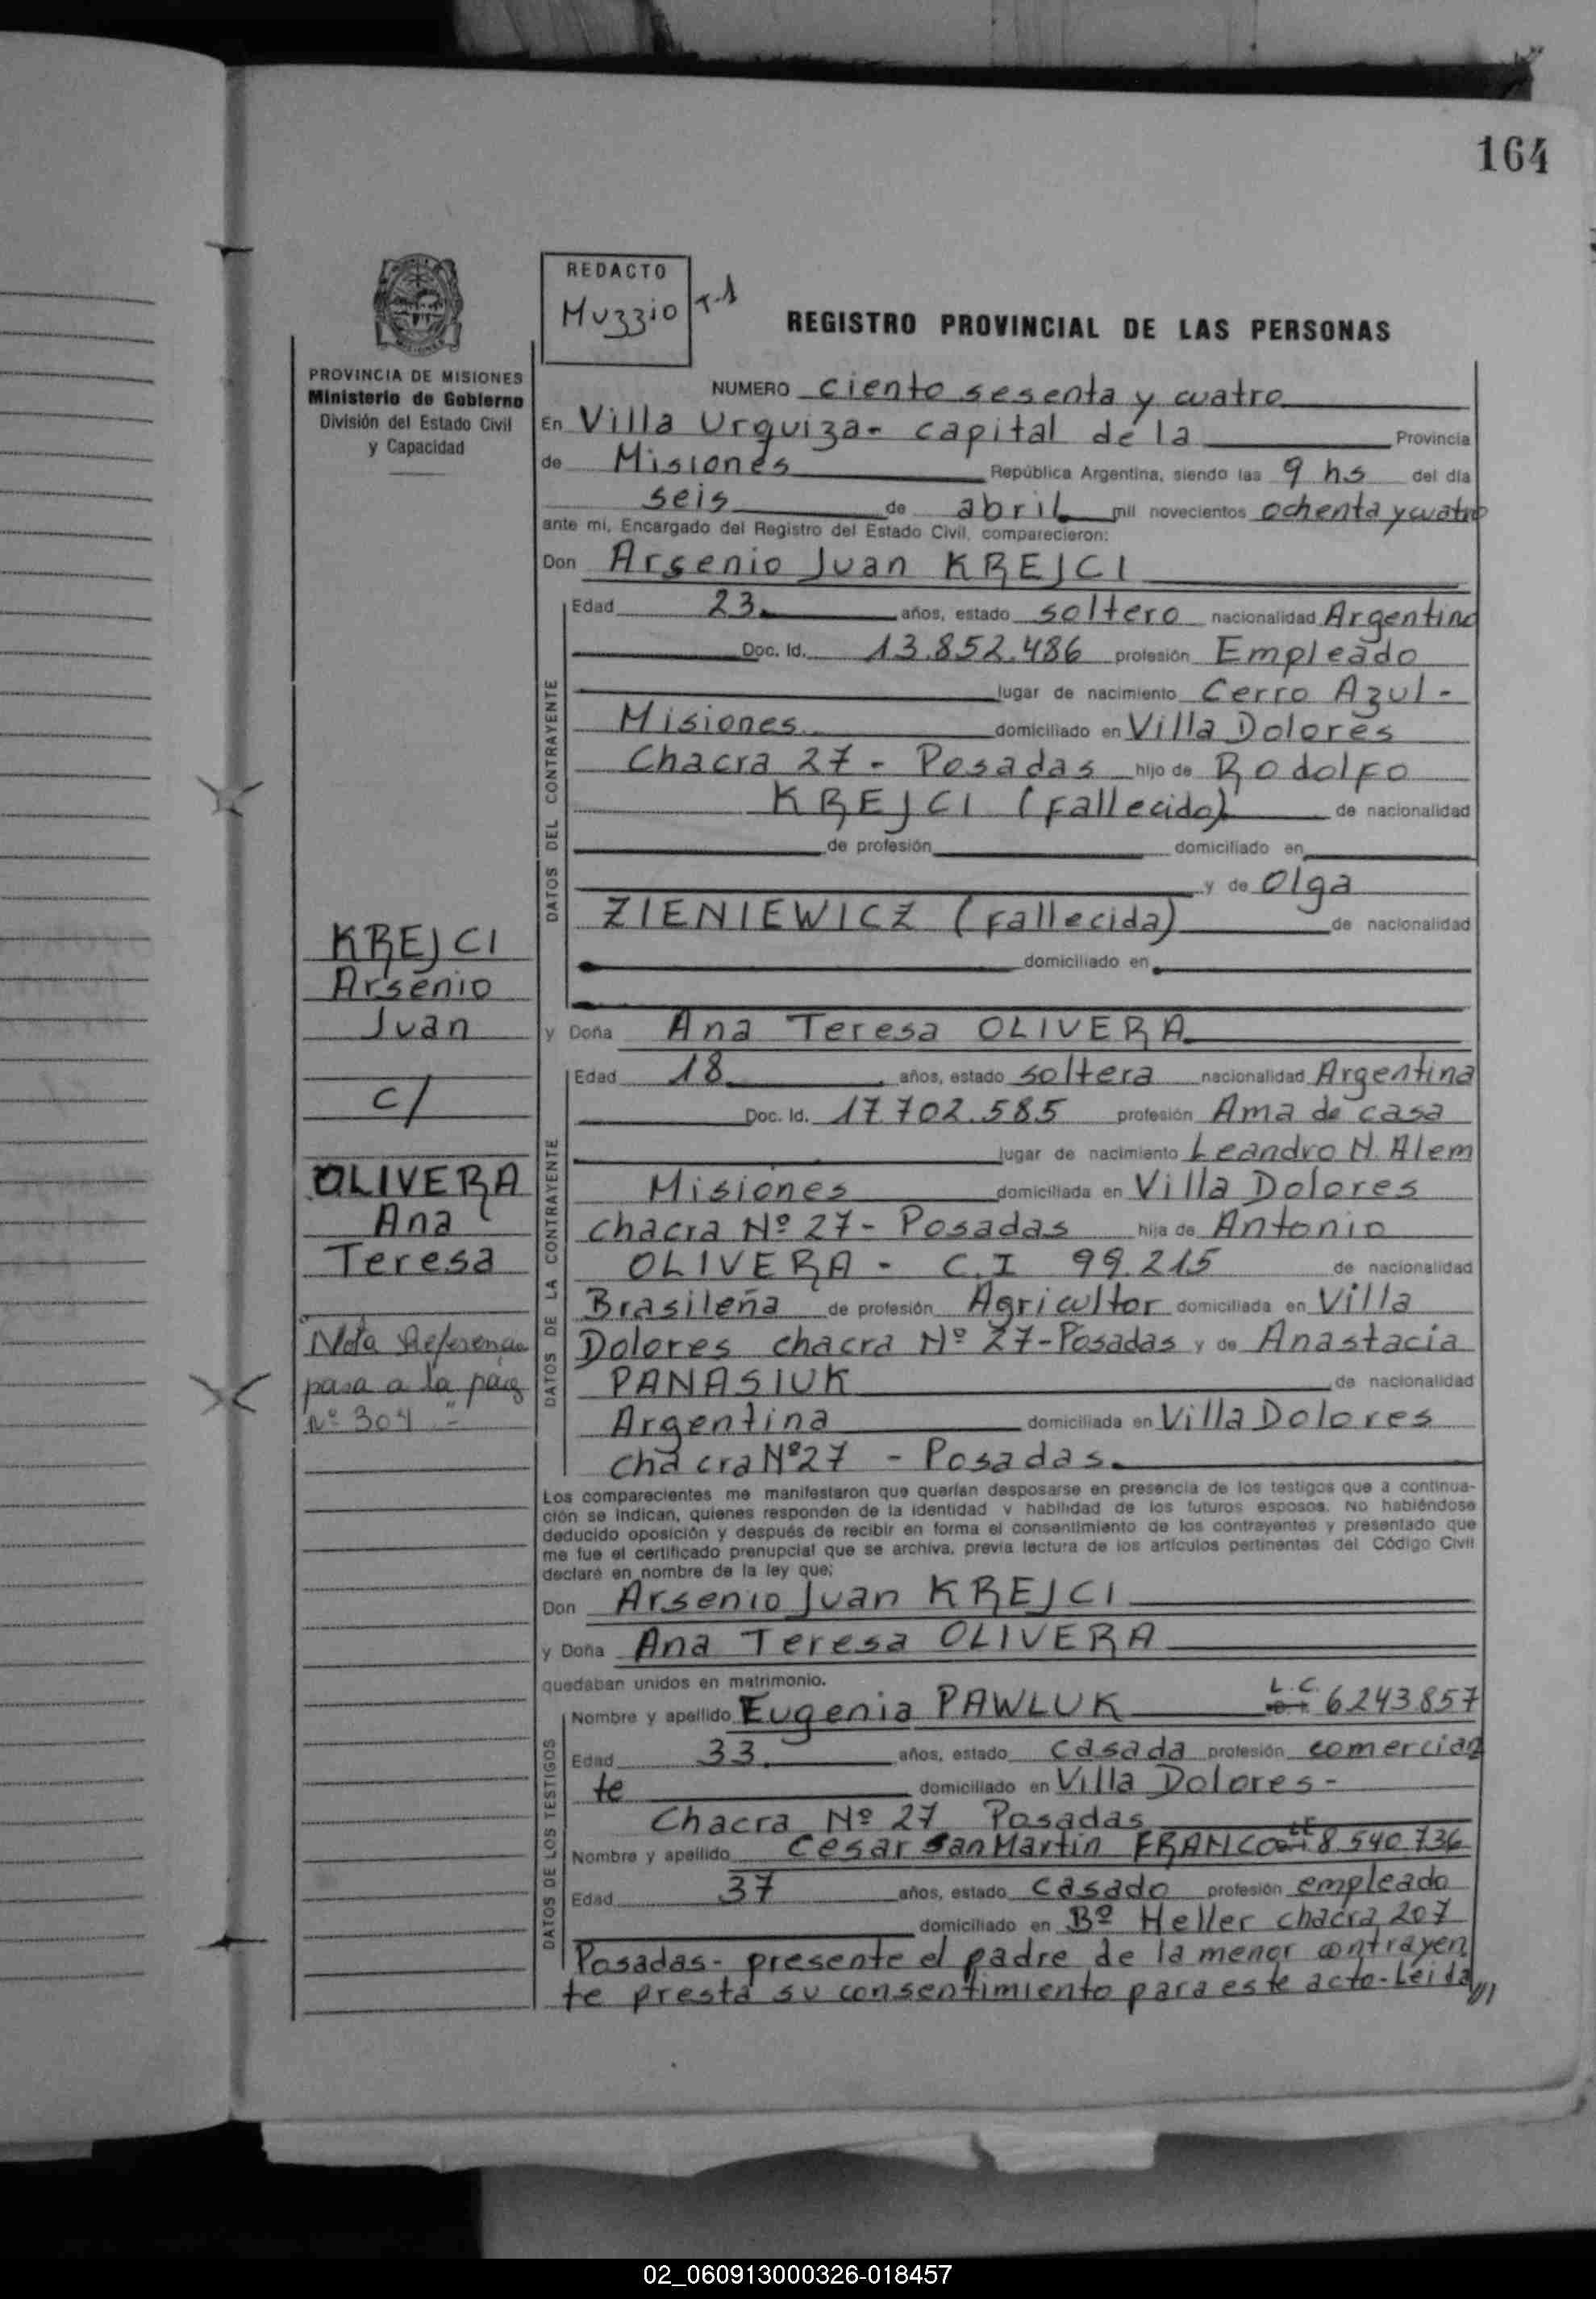 164
REDACTO
Muzzio T-1
REGISTRO PROVINCIAL DE LAS PERSONAS
PROVINCIA DE MISIONES
Ministerio de Gobierno
División del Estado Civil
y Capacidad
NUMERO ciento sesenta y cuatro
En Villa Urquiza- capital de la Provincia
de Misiones República Argentina, siendo las 9 hs del día
seis de abril mil novecientos ochenta y cuatro
ante mi, Encargado del Registro del Estado Civil, comparecieron:
Don Arsenio Juan KREJCI
DATOS DEL CONTRAYENTE
Edad 23 años, estado soltero nacionalidad Argentina
Doc. Id. 13.852.486 profesión Empleado
lugar de nacimiento Cerro Azul -
Misiones domiciliado en Villa Dolores
Chacra 27 - Posadas hijo de Rodolfo
KREJCI (Fallecido) de nacionalidad
de profesión domiciliado en
y de Olga
ZIENIEWICZ (Fallecida) de nacionalidad
domiciliado en
KREJCI
Arsenio
Juan
c/
OLIVERA
Ana
Teresa
Nota Referencia
pasa a la pag
Nº 304 -"
y Doña Ana Teresa OLIVERA
DATOS DE LA CONTRAYENTE
Edad 18 años, estado soltera nacionalidad Argentina
Doc. Id. 17.702.585 profesión Ama de casa
lugar de nacimiento Leandro N. Alem
Misiones domiciliada en Villa Dolores
chacra Nº 27 - Posadas hija de Antonio
OLIVERA - C.I 99.215 de nacionalidad
Brasileña de profesión Agricultor domiciliada en Villa
Dolores chacra Nº 27-Posadas y de Anastacia
PANASIUK de nacionalidad
Argentina domiciliada en Villa Dolores
chacra Nº27 - Posadas.
Los comparecientes me manifestaron que querían desposarse en presencia de los testigos que a continua-
ción se indican, quienes responden de la identidad y habilidad de los futuros esposos. No habiéndose
deducido oposición y después de recibir en forma el consentimiento de los contrayentes y presentado que
me fue el certificado prenupcial que se archiva, previa lectura de los artículos pertinentes del Código Civil
declaré en nombre de la ley que:
Don Arsenio Juan KREJCI
y Doña Ana Teresa OLIVERA
quedaban unidos en matrimonio.
DATOS DE LOS TESTIGOS
Nombre y apellido Eugenia PAWLUK L.C. 6243.857
Edad 33 años, estado casada profesión comercian
te domiciliado en Villa Dolores -
Chacra Nº 27 Posadas
Nombre y apellido Cesar San Martin FRANCO LE 8.540.736
Edad 37 años, estado casado profesión empleado
domiciliado en Bº Heller chacra 207
Posadas- presente el padre de la menor contrayen
te presta su consentimiento para este acto-Leida ///
02_060913000326-018457